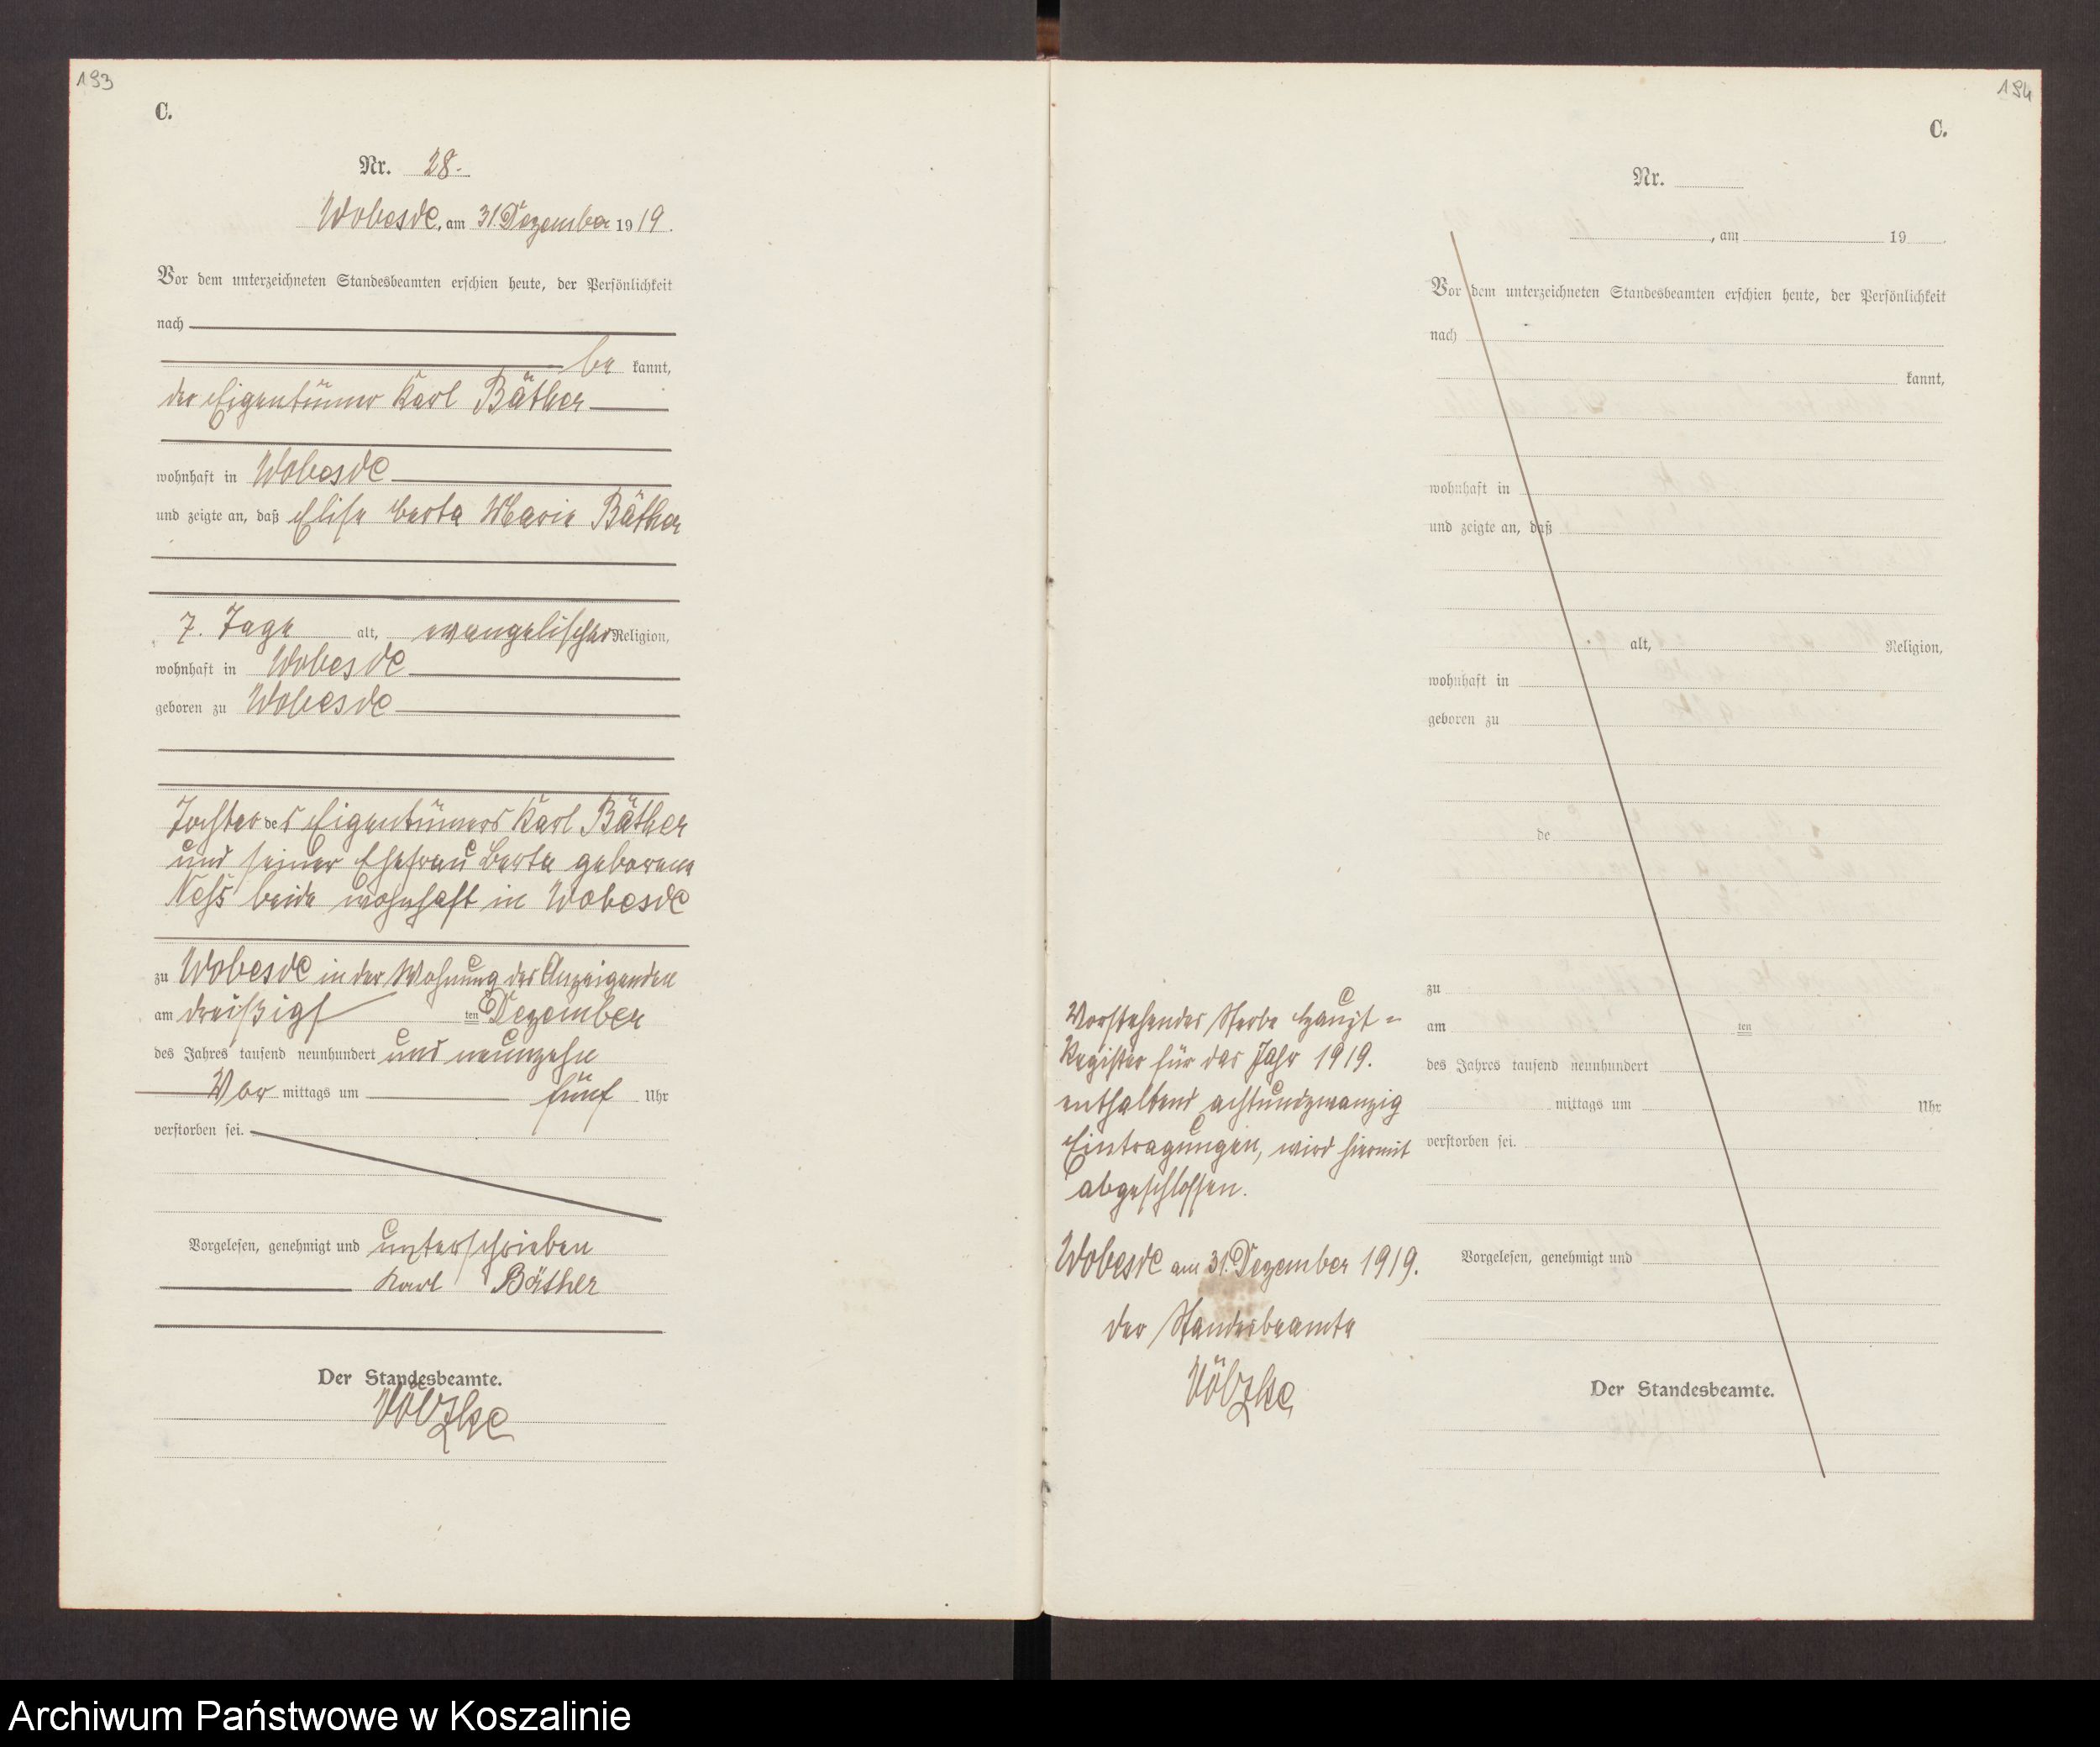 193
C.
Nr. 28.
Wobesde, am 31. Dezember 1919.
Vor dem unterzeichneten Standesbeamten erschien heute, der Persönlichkeit
nach
be kannt,
der Eigentümer Karl Bäther
wohnhaft in Wobesde
und zeigte an, daß Elise Berta Marie Bäther
7. Tage alt, evangelischer Religion,
wohnhaft in Wobesde
geboren zu Wobesde
Tochter des Eigentümers Karl Bäther
und seiner Ehefrau Berta geborene
beide wohnhaft in Wobesde
zu Wobesde in der Wohnung des Anzeigenden
am dreißigs ten Dezember
des Jahres tausend neunhundert und neunzehn
Vor mittags um fünf Uhr
verstorben sei.
Vorgelesen, genehmigt und unterschrieben
Karl Bäther
Der Standesbeamte.
Völzke
194
C.
Nr.
, am 19 .
Vor dem unterzeichneten Standesbeamten erschien heute, der Persönlichkeit
nach
kannt,
wohnhaft in
und zeigte an, daß
alt, Religion,
wohnhaft in
geboren zu
de
zu
am ten
des Jahres tausend neunhundert
mittags um Uhr
verstorben sei.
Vorgelesen, genehmigt und
Der Standesbeamte.
Vorstehendes Sterbe Haupt-
Register für das Jahr 1919.
enthaltend achtundzwanzig
Eintragungen, wird hiermit
abgeschlossen.
Wobesde am 31. Dezember 1919.
Der Standesbeamte
Völzke
Archiwum Państwowe w Koszalinie